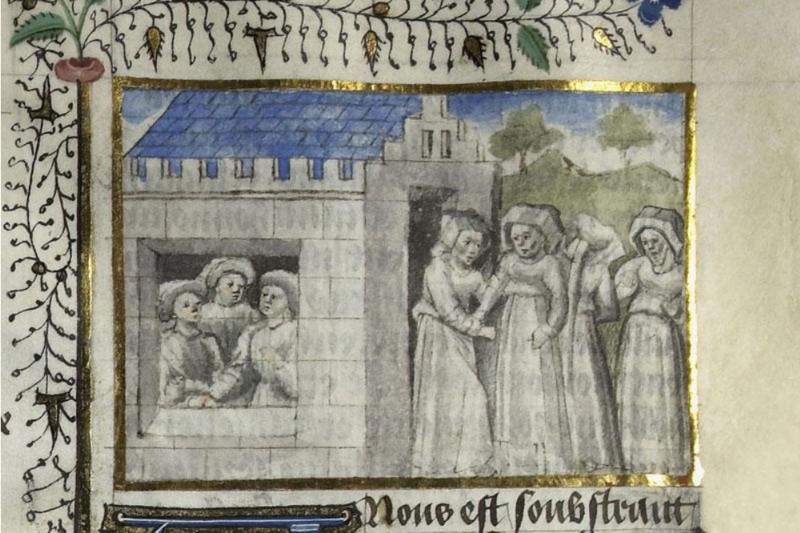 Nous est soubstrait